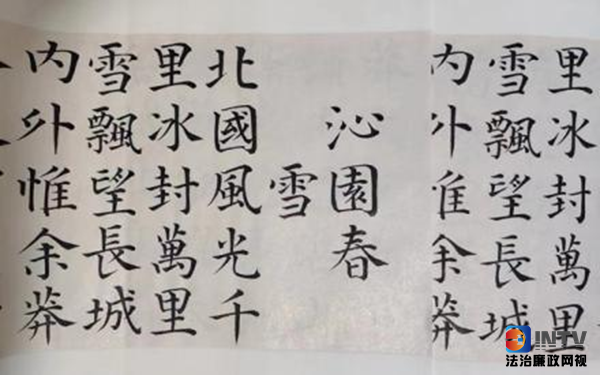 里冰封萬里
雪飄望長城
内外惟余莽
沁園春
雪
北國風光千
里冰封萬里
雪飄望長城
内外惟余莽
法治廉政网视